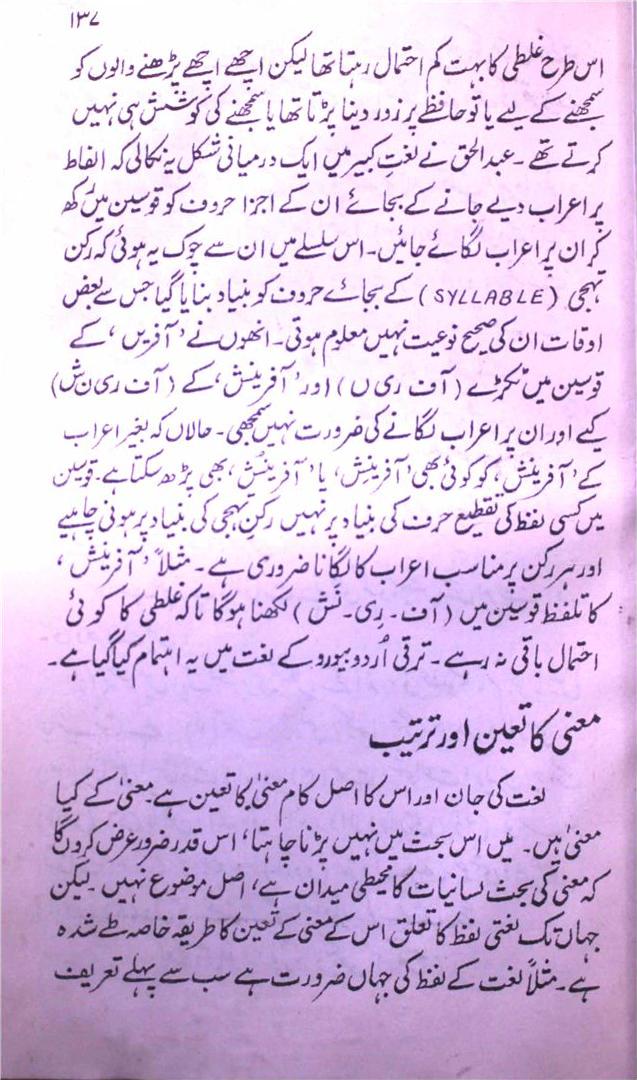 ۱۳۷
اس طرح غلطی کا بہت کم احتمال رہتا تھا لیکن اچھے اچھے پڑھنے والوں کو
سمجھنے کے لیے یا تو حافظے پر زور دینا پڑتا تھا یا سمجھنے کی کوشش ہی نہیں
کرتے تھے ۔ عبدالحق نے لغتِ کبیر میں ایک درمیانی شکل یہ نکالی کہ الفاظ
پر اعراب دیے جانے کے بجائے ان کے اجزا حروف کو قوسین میں رکھ
کر ان پر اعراب لگائے جائیں۔ اس سلسلے میں ان سے چوک یہ ہوئی کہ رکنِ
تہجی (SYLLABLE) کے بجائے حروف کو بنیاد بنایا گیا جس سے بعض
اوقات ان کی صحیح نوعیت نہیں معلوم ہوتی۔ انھوں نے ’آفریں‘ کے
قوسین میں ٹکڑے (آ ف ر ی ں) اور ’آفرینش‘ کے (آ ف ر ی ن ش)
کیے اور ان پر اعراب لگانے کی ضرورت نہیں سمجھی۔ حالاں کہ بغیر اعراب
کے ’آفرینش‘ کو کوئی بھی ’آفرینش‘ یا ’آفرینش‘ بھی پڑھ سکتا ہے۔ قوسین
میں کسی لفظ کی تقطیع حرف کی بنیاد پر نہیں رکنِ تہجی کی بنیاد پر ہونی چاہیے
اور ہر رکن پر مناسب اعراب کا لگانا ضروری ہے ۔ مثلاً ’آفرینش‘
کا تلفظ قوسین میں (آف ۔ رِی ۔ نَش) لکھنا ہوگا تاکہ غلطی کا کوئی
احتمال باقی نہ رہے ۔ ترقی اُردو بیورو کے لغت میں یہ اہتمام کیا گیا ہے۔
معنی کا تعین اور ترتیب
لغت کی جان اور اس کا اصل کام معنیٰ کا تعین ہے۔ معنیٰ کے کیا
معنیٰ ہیں۔ میں اس بحث میں نہیں پڑنا چاہتا، اس قدر ضرور عرض کروں گا
کہ معنی کی بحث لسانیات کا محیطی میدان ہے، اصل موضوع نہیں۔ لیکن
جہاں تک لغتی لفظ کا تعلق اس کے معنی کے تعین کا طریقہ خاصہ طے شدہ
ہے۔ مثلاً لغت کے لفظ کی جہاں ضرورت ہے سب سے پہلے تعریف